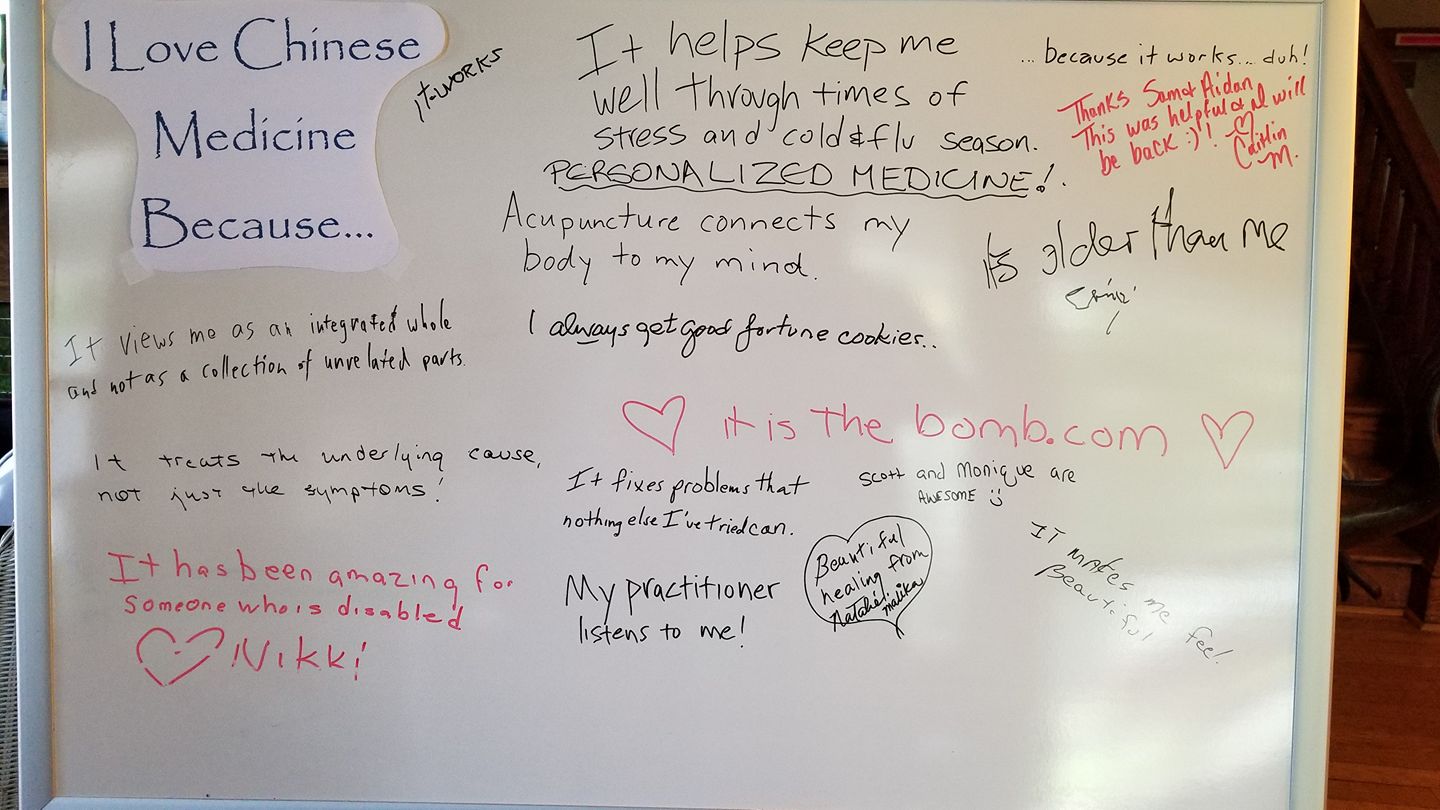 I Love Chinese
Medicine
Because...
it works
It helps keep me
well through times of
stress and cold & flu season.
PERSONALIZED MEDICINE!
...because it works... duh!
Thanks Sam & Aidan
This was helpful & I will
be back :)! ♡
Caitlin
M.
Acupuncture connects my
body to my mind.
It's older than me
I always get good fortune cookies..
It views me as an integrated whole
and not as a collection of unrelated parts.
♡ it is the bomb.com ♡
It treats the underlying cause,
not just the symptoms!
It fixes problems that
nothing else I've tried can.
Scott and Monique are
AWESOME
It has been amazing for
someone who is disabled
♡ Nikki
My practitioner
listens to me!
Beautiful
healing from
Natalie!
Malika
IT MAKES me feel
Beautiful